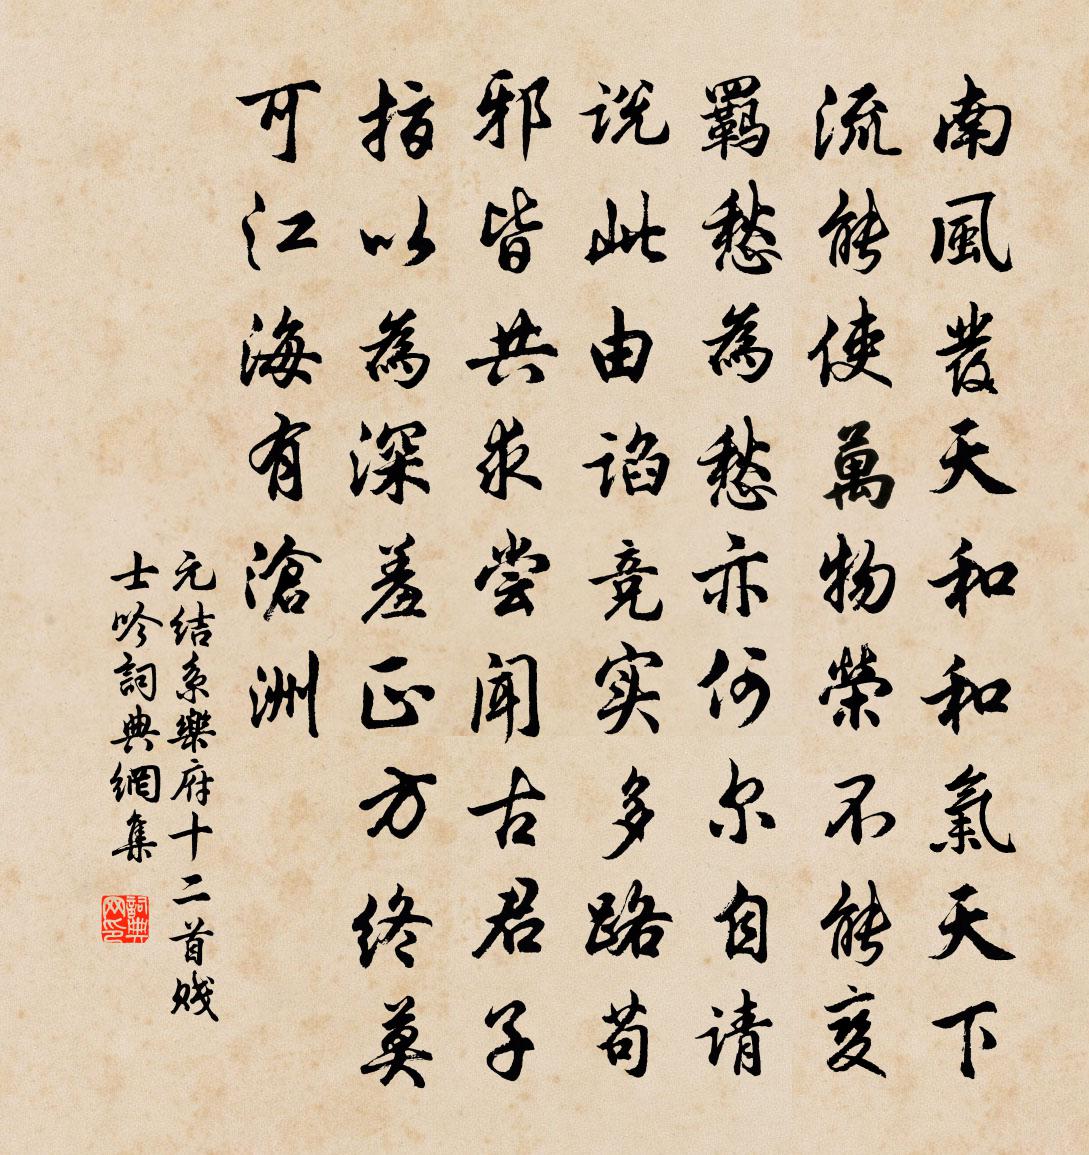 南風發天和和氣天下
流能使萬物榮不能變
羈愁為愁亦何尔自请
说此由谄竞实多路苟
邪皆共求尝闻古君子
指以為深羞正方终莫
可江海有滄洲
元结系樂府十二首贱
士吟詞典網集
詞典
网印